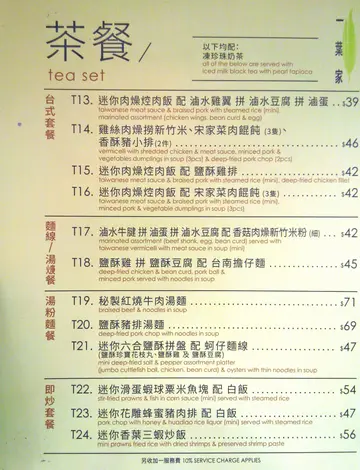 茶餐/
tea set
以下均配:
凍珍珠奶茶
all of the below are served with
iced milk black tea with pearl tapioca
一葉家
台式套餐
T13. 迷你肉燥焢肉飯 配 滷水雞翼 拼 滷水豆腐 拼 滷蛋 .. $39
taiwanese meat sauce & braised pork with steamed rice (mini)
marinated assortment (chicken wings, bean curd & egg)
T14. 雞絲肉燥撈新竹米、宋家菜肉餛飩 (3隻)、
香酥豬小排(2件) $46
vermicelli with shredded chicken & meat sauce, minced pork &
vegetables dumplings in soup (3pcs) & deep-fried pork chop (2pcs)
T15. 迷你肉燥焢肉飯 配 鹽酥雞排 $42
taiwanese meat sauce & braised pork with steamed rice (mini), deep-fried chicken fillet
T16. 迷你肉燥焢肉飯 配 宋家菜肉餛飩 (3隻) $42
taiwanese meat sauce & braised pork with steamed rice (mini),
minced pork & vegetable dumplings in soup (3pcs)
麵線/湯麵餐
T17. 滷水牛腱 拼 滷蛋 拼 滷水豆腐 配 香菇肉燥新竹米粉 (細) $42
marinated assortment (beef shank, egg, bean curd) served with
taiwanese vermicelli with meat sauce in soup (mini)
T18. 鹽酥雞 拼 鹽酥豆腐 配 台南擔仔麵 $45
deep-fried chicken & bean curd, pork ball &
minced pork served with noodles in soup
湯粉麵餐
T19. 秘製紅燒牛肉湯麵 $71
braised beef & noodles in soup
T20. 鹽酥豬排湯麵 $69
deep-fried pork chop with noodles in soup
T21. 迷你六合鹽酥拼盤 配 蚵仔麵線 $47
(鹽酥珍寶花枝丸、鹽酥雞 及 鹽酥豆腐)
mini deep-fried salt & pepper assortment platter
(jumbo cuttlefish ball, chicken, bean curd) & oysters with thin noodles in soup
即炒套餐
T22. 迷你滑蛋蝦球粟米魚塊 配 白飯 $54
stir-fried prawns & fish in corn sauce (mini) served with steamed rice
T23. 迷你花雕蜂蜜豬肉排 配 白飯 $47
pork chop with honey & huadiao rice liquor (mini) served with steamed rice
T24. 迷你香葉三蝦炒飯 $56
mini prawns fried rice with dried shrimps & preserved shrimp paste
另收加一服務費 10% SERVICE CHARGE APPLIES